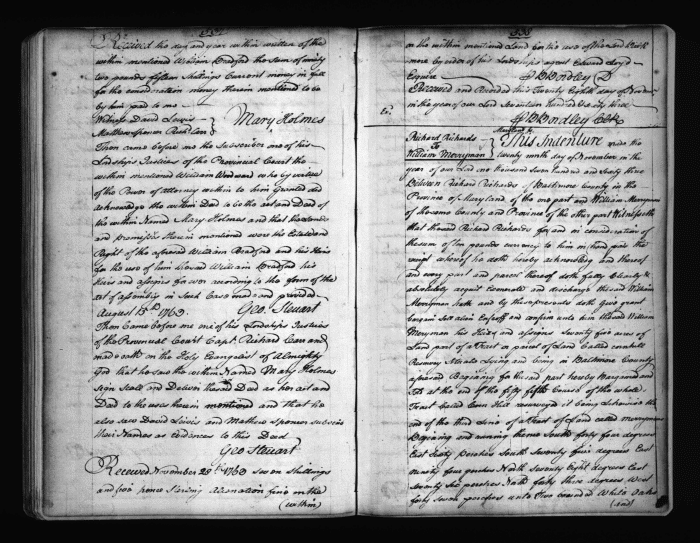 Received the day and year within written of the
within mentioned William Bradford the sum of ninety
two pounds fifteen Shillings Current money in full
for the consideration money therein mentioned to be
by him paid to me
Witness David Lewis
Mary Holmes
Then came before me the Subscriber one of his
Lordships Justices of the Provincial Court the
within mentioned William Woodward who by virtue
of the Power of attorney within to him granted did
acknowledge the within Deed to be the act and Deed of
the within Named Mary Holmes and that the Lands
and premisses therein mentioned were the Estate and
Right of the aforesaid William Bradford and his Heirs
for the use of him the said William Bradford his
Heirs and assigns for ever according to the form of the
act of assembly in such Case made and provided
August 13th 1763 Geo. Steuart
Then Came before me one of his Lordships Justices
of the Provincial Court Capt. Richard Carr and
made oath on the Holy Evangelist of Almighty
God that he saw the within Named Mary Holmes
sign Seal and Deliver the said Deed as her act and
Deed to the uses therein mentioned and that he
also saw David Lewis and Mathew Spooner subscribe
their Names as evidences to this Deed
Geo Steuart
Received November 28th 1763 seven shillings
and five pence Sterling alienation fine on the
(within)
on the within mentioned Land for the use of the Lord Balti
more by order of his Lordships agent Edward Loyd
Esquire
Received and Recorded this Twenty Eighth day of November
in the year of our Lord Seventeen hundred & sixty three
Ex.
Richard Richards
To
William Merryman
This Indenture made the
twenty ninth day of November in the
year of our Lord one thousand seven hundred and Sixty three
Between Richard Richards of Baltimore County in the
Province of Maryland of the one part and William Merryman
of the same County and Province of the other part Witnesseth
that the said Richard Richards for and in consideration of
the sum of ten pounds currency to him in hand paid the
receipt whereof he doth hereby acknowledge and thereof
and every part and parcel thereof doth fully Clearly &
absolutely acquit Exonerate and discharge the said William
Merryman hath and by these presents doth give grant
bargain Sell alien Enfeoff and confirm unto him the said William
Merryman his Heirs and assigns Seventy five acres of
Land part of a Tract or parcel of Land Called
Lying and being in Baltimore County
aforesaid Beginning for the said part hereby Bargained and
Sold at the end of the fifty fifth Course of the whole
Tract called resurveyed it being
end of the third line of a Tract of Land called Merrymans
Beginning and running thence South forty four degrees
East sixty perches South Seventy five degrees East
ninety four perches North Seventy Eight degrees East
Seventy Six perches North forty three degrees West
forty seven perches unto Two bounded White Oaks
(and)